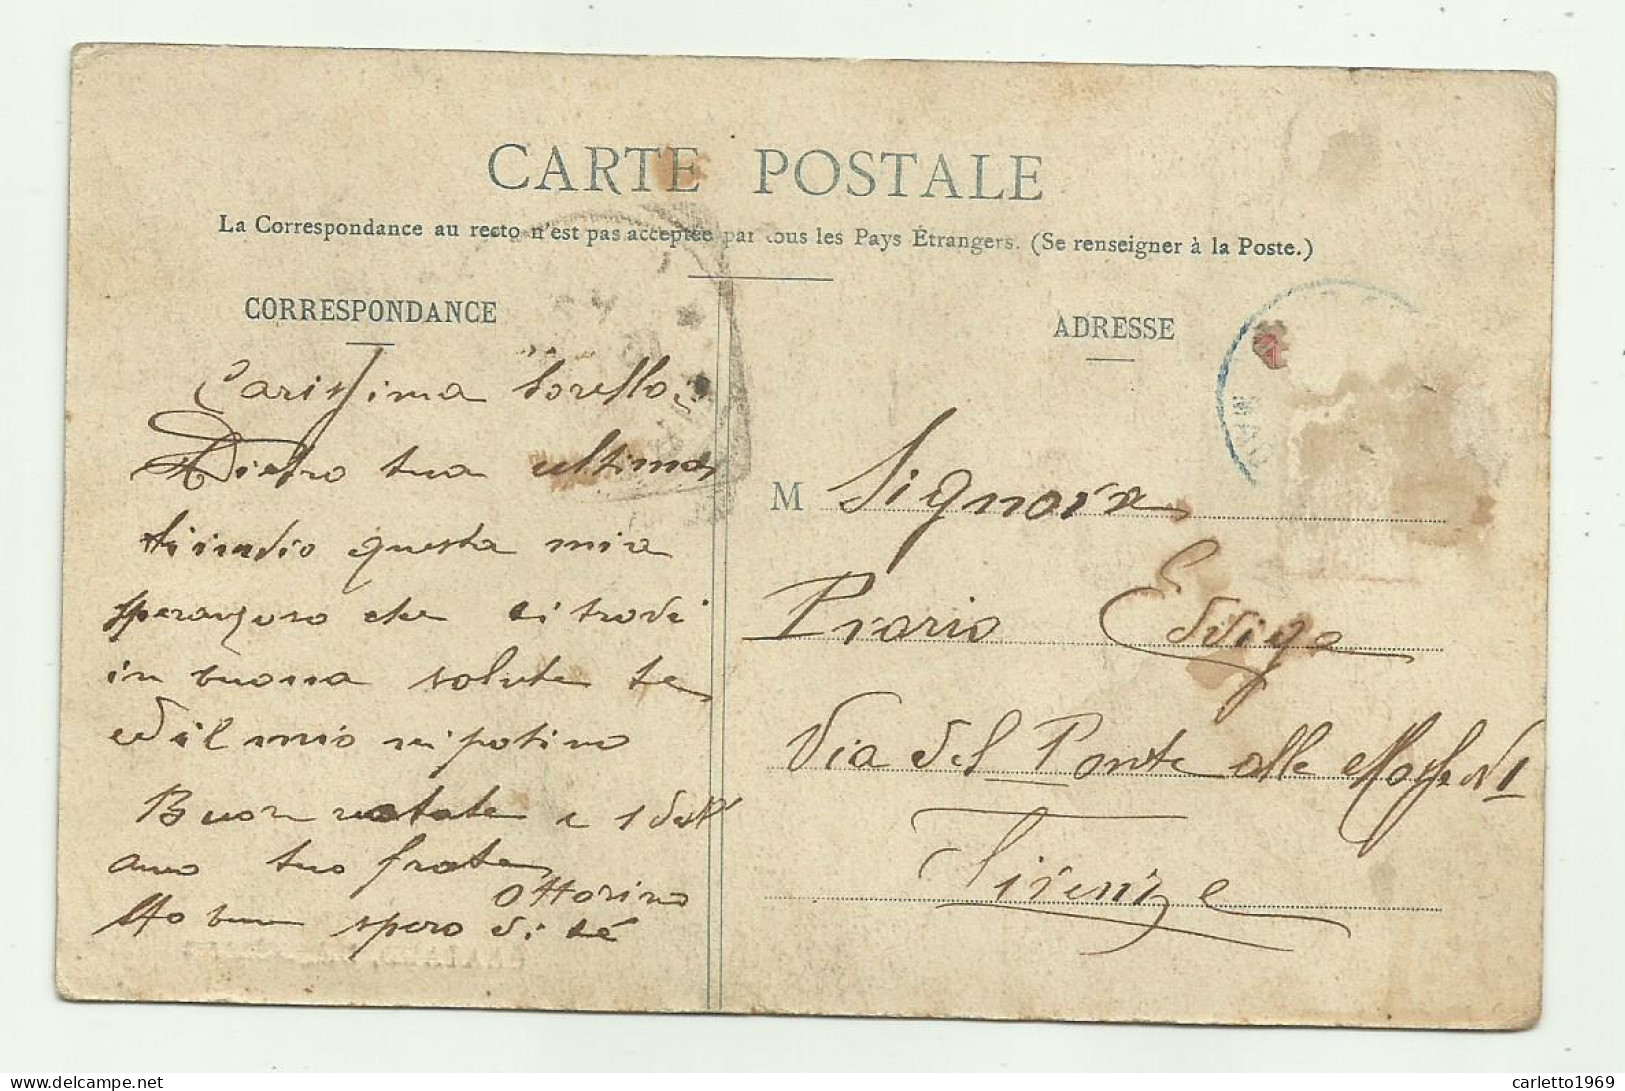 CARTE POSTALE
La Correspondance au recto n'est pas acceptée par tous les Pays Étrangers. (Se renseigner à la Poste.)
CORRESPONDANCE
ADRESSE
Carissima Sorella
Dietro tua ultima
questa mia
che ti trovi
in buona salute te
ed il mio nipotino
Buon natale e 1 dell'
ano tuo fratello
Ottorino
spero di té
M Signora
Edvige
Via del Ponte alle Mosse N 1
Firenze
carletto1969